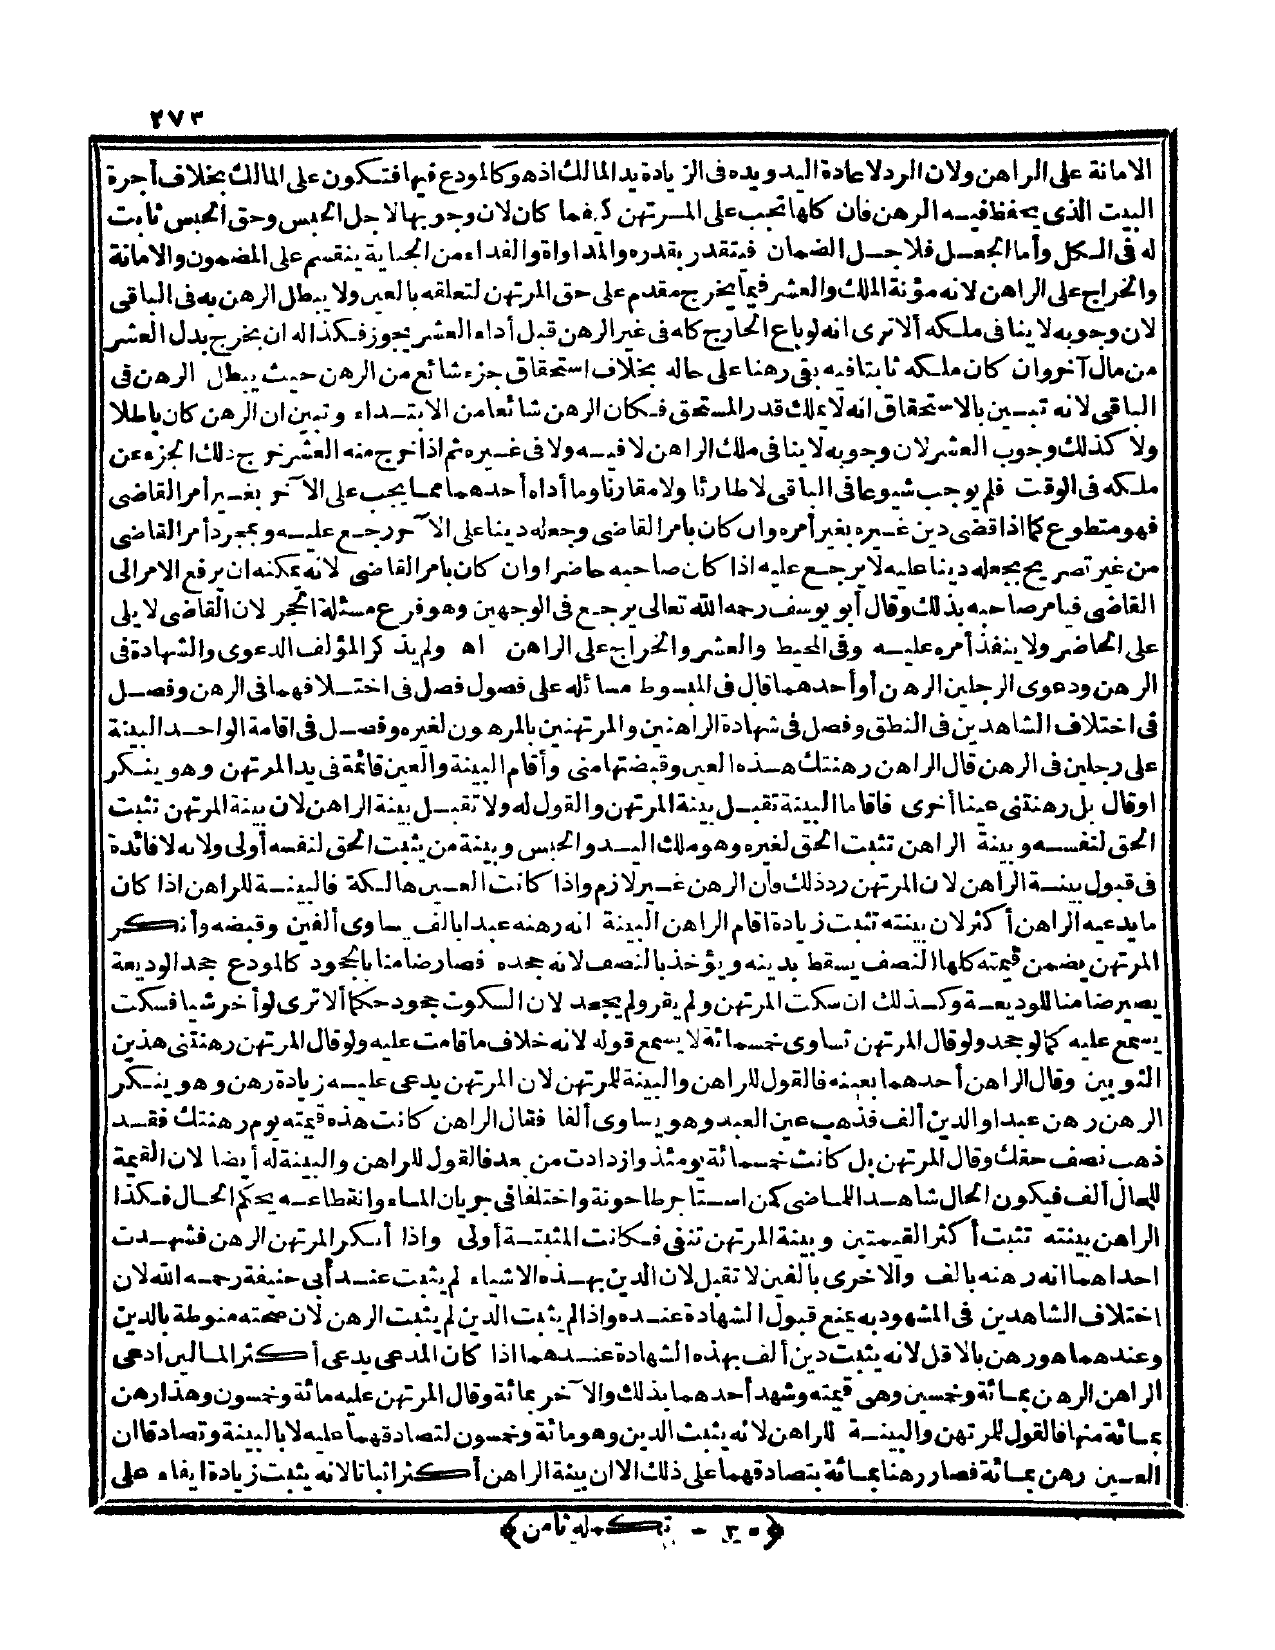 ٢٧٣
الامانة على الراهن ولان الرد لاعادة اليد ويده فى الزيادة يد المالك اذ هو كالمودع فيها فتكون على المالك بخلاف أجرة
البيت الذى يحفظ فيه الرهن فان كلها تجب على المرتهن كيفما كان لان وجوبها لاجل الحبس وحق الحبس ثابت
له فى الكل وأما الجعل فلاجل الضمان فيتقدر بقدره والمداواة والفداء من الجناية ينقسم على المضمون والامانة
والخراج على الراهن لانه مؤنة الملك والعشر فيما يخرج مقدم على حق المرتهن لتعلقه بالعين ولا يبطل الرهن به فى الباقى
لان وجوبه لا ينافى ملكه ألا ترى انه لو باع الخارج كله فى غير الرهن قبل أداء العشر يجوز فكذا له ان يخرج بدل العشر
من مال آخر وان كان ملكه ثابتا فيه بقى رهنا على حاله بخلاف استحقاق جزء شائع من الرهن حيث يبطل الرهن فى
الباقى لانه تبين بالاستحقاق انه لا يملك قدر المستحق فكان الرهن شائعا من الابتداء وتبين ان الرهن كان باطلا
ولا كذلك وجوب العشر لان وجوبه لا ينافى ملك الراهن لا فيه ولا فى غيره ثم اذا خرج منه العشر خرج ذلك الجزء عن
ملكه فى الوقت فلم يوجب شيوعا فى الباقى لا طارئا ولا مقارنا وما أداه أحدهما مما يجب على الآخر بغير أمر القاضى
فهو متطوع كما اذا قضى دين غيره بغير أمره وان كان بامر القاضى وجعله دينا على الآخر رجع عليه وبمجرد أمر القاضى
من غير تصريح بجعله دينا عليه لا يرجع عليه اذا كان صاحبه حاضرا وان كان بامر القاضى لانه يمكنه ان يرفع الامر الى
القاضى فيامر صاحبه بذلك وقال أبو يوسف رحمه الله تعالى يرجع فى الوجهين وهو فرع مسئلة الحجر لان القاضى لا يلى
على الحاضر ولا ينفذ أمره عليه وفى المحيط والعشر والخراج على الراهن اه ولم يذكر المؤلف الدعوى والشهادة فى
الرهن ودعوى الرجلين الرهن أو أحدهما قال فى المبسوط مسائله على فصول فصل فى اختلافهما فى الرهن وفصل
فى اختلاف الشاهدين فى النطق وفصل فى شهادة الراهنين والمرتهنين بالمرهون لغيره وفصل فى اقامة الواحد البينة
على رجلين فى الرهن قال الراهن رهنتك هذه العين وقبضتها منى وأقام البينة والعين قائمة فى يد المرتهن وهو ينكر
او قال بل رهنتنى عينا أخرى فاقاما البينة تقبل بينة المرتهن والقول له ولا تقبل بينة الراهن لان بينة المرتهن تثبت
الحق لنفسه وبينة الراهن تثبت الحق لغيره وهو ملك اليد والحبس وبينة من يثبت الحق لنفسه أولى ولانه لا فائدة
فى قبول بينة الراهن لان المرتهن رد ذلك وان الرهن غير لازم واذا كانت العين هالكة فالبينة للراهن اذا كان
ما يدعيه الراهن أكثر لان بينته تثبت زيادة اقام الراهن البينة انه رهنه عبدا بالف يساوى ألفين وقبضه وأنكر
المرتهن يضمن قيمته كلها النصف يسقط بدينه ويؤخذ بالنصف لانه جحده فصار ضامنا بالجحود كالمودع جحد الوديعة
يصير ضامنا للوديعة وكذلك ان سكت المرتهن ولم يقر ولم يجحد لان السكوت جحود حكما ألا ترى لو أخر شيا فسكت
يسمع عليه كما لو جحد ولو قال المرتهن تساوى خمسمائة لا يسمع قوله لانه خلاف ما قامت عليه ولو قال المرتهن رهنتنى هذين
الثوبين وقال الراهن أحدهما بعينه فالقول للراهن والبينة للمرتهن لان المرتهن يدعى عليه زيادة رهن وهو ينكر
الرهن رهن عبدا والدين ألف فذهب عين العبد وهو يساوى ألفا فقال الراهن كانت هذه قيمته يوم رهنتك فقد
ذهب نصف حقك وقال المرتهن بل كانت خمسمائة يومئذ وازدادت من بعد فالقول للراهن والبينة له أيضا لان القيمة
للحال ألف فيكون الحال شاهدا للماضى كمن استاجر طاحونة واختلفا فى جريان الماء وانقطاعه يحكم الحال فكذا
الراهن بينته تثبت أكثر القيمتين وبينة المرتهن تنفى فكانت المثبتة أولى واذا أنكر المرتهن الرهن فشهدت
احداهما انه رهنه بالف والاخرى بالفين لا تقبل لان الدين بهذه الاشياء لم يثبت عند أبى حنيفة رحمه الله لان
اختلاف الشاهدين فى المشهود به يمنع قبول الشهادة عنده واذا لم يثبت الدين لم يثبت الرهن لان صحته منوطة بالدين
وعندهما هو رهن بالاقل لانه يثبت دين ألف بهذه الشهادة عندهما اذا كان المدعى يدعى أكثر المالين ادعى
الراهن الرهن بمائة وخمسين وهى قيمته وشهد أحدهما بذلك والآخر بمائة وقال المرتهن عليه مائة وخمسون وهذا رهن
بمائة منها فالقول للمرتهن والبينة للراهن لانه يثبت الدين وهو مائة وخمسون لتصادقهما عليه لا بالبينة وتصادقا ان
العين رهن بمائة فصار رهنا بمائة بتصادقهما على ذلك الا ان بينة الراهن أكثر اثباتا لانه يثبت زيادة ايفاء على
﴿٣٥ - تكمله ثامن﴾